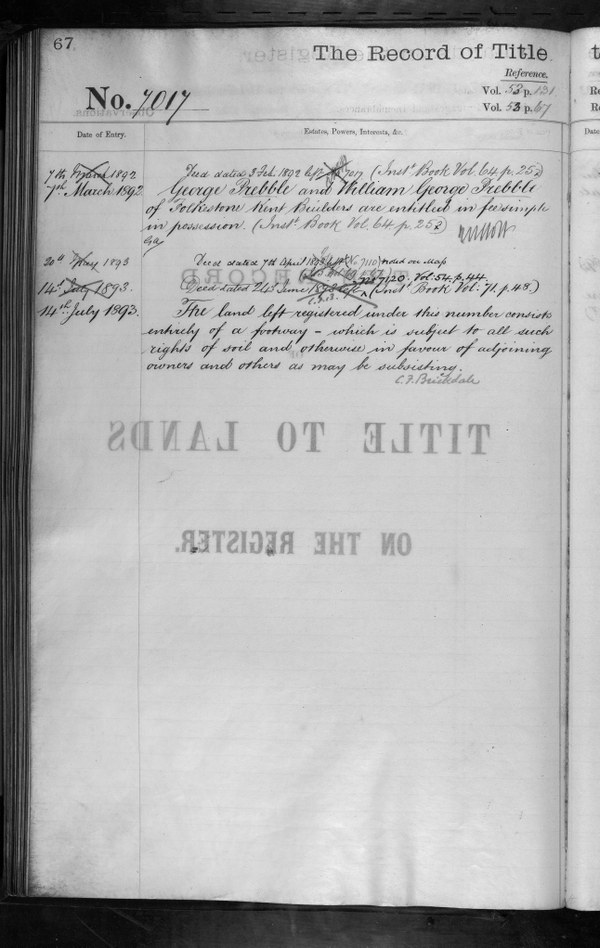 67
The Record of Title
Reference.
Vol. 53 p. 131
Vol. 53 p. 67
No. 7017
Date of Entry.
Estates, Powers, Interests, &c.
7th March 1892
Deed dated 5 Feb. 1892 left 7017 (Inst. Book Vol. 64 p. 252)
7th March 1892
George Prebble and William George Prebble
of Folkestone Kent Builders are entitled in fee simple
in possession. (Inst. Book Vol. 64 p. 252)
20th May 1893
Deed dated 7th April 1893 left No 7110 noted on Map
No 7120. Vol. 54. p. 44.
14th July 1893.
Deed dated 24th June 1893 left (Inst. Book Vol: 71. p. 48.)
14th July 1893.
The land left registered under this number consists
entirely of a footway – which is subject to all such
rights of soil and otherwise in favour of adjoining
owners and others as may be subsisting.
C. F. Brickdale
RECORD
TITLE TO LANDS
ON THE REGISTER.